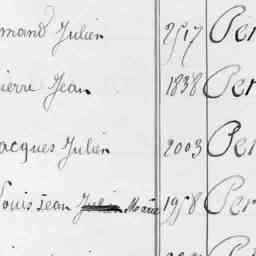 mand Julien 2517 Per
ierre Jean 1838 Per
acques Julien 2003 Per
Louis Jean Julien Marie 1958 Per